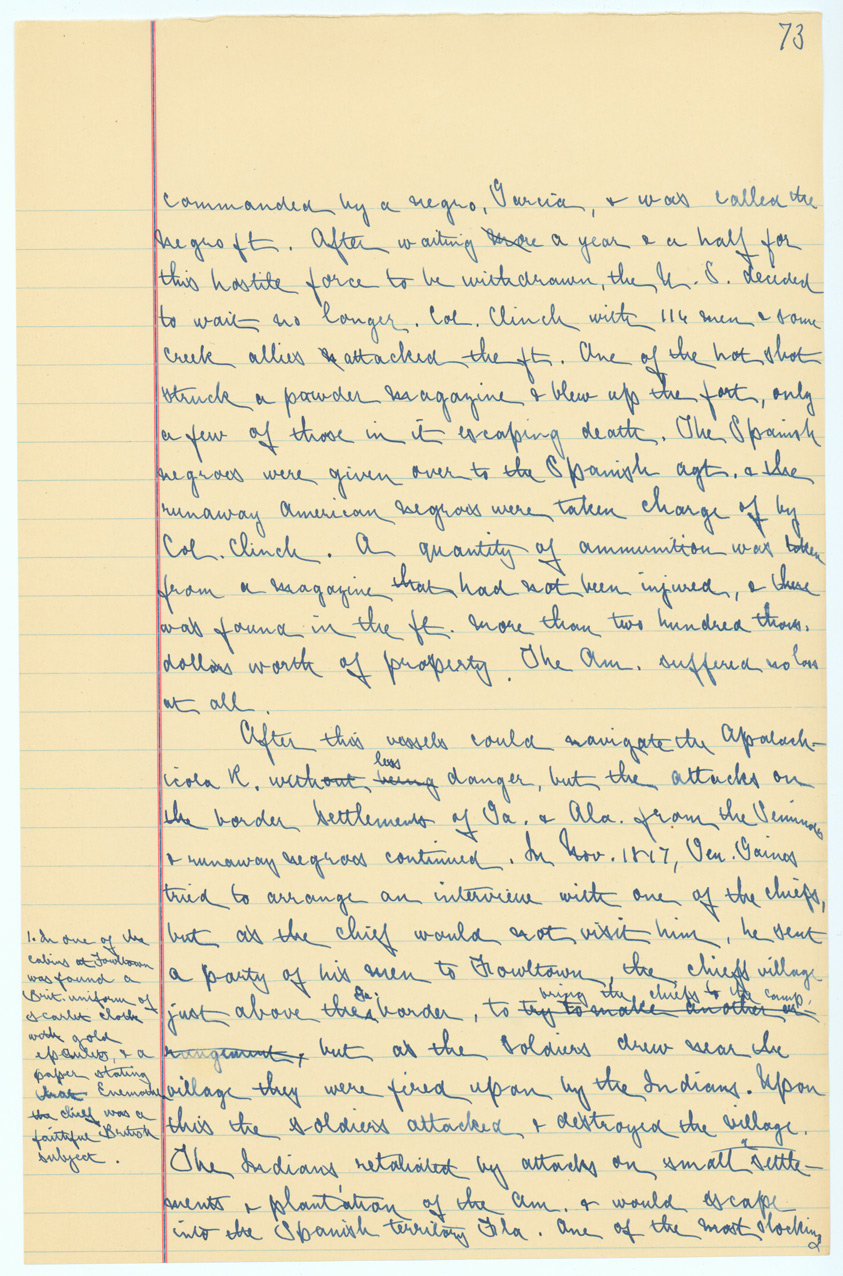 73
commanded by a negro, Garcia, & was called the
negro ft. After waiting more a year & a half for
this hostile force to be withdrawn, the U. S. decided
to wait no longer. Col. Clinch with 116 men & some
Creek allies attacked the ft. One of the hot shot
struck a powder magazine & blew up the fort, only
a few of those in it escaping death. The Spanish
negroes were given over to the Spanish agt. & the
runaway American negroes were taken charge of by
Col. Clinch. A quantity of ammunition was taken
from a magazine that had not been injured, & there
was found in the ft. more than two hundred thous.
dollars worth of property. The Am. suffered no loss
at all.
After this vessels could navigate the Apalach-
less
icola R. without being danger, but the attacks on
the border settlements of Ga. & Ala. from the Seminoles
& runaway negroes continued. In Nov. 1817, Gen. Gaines
tried to arrange an interview with one of the chiefs,
but as the chief would not visit him, he sent
a party of his men to Fowltown, the chiefs village
bring the chiefs to the camp,
just above the Fla. border, to try to make another ar-
rangement, but as the soldiers drew near the
village they were fired upon by the Indians. Upon
this the soldiers attacked & destroyed the village.
The Indians retaliated by attacks on small settle-
ments & plantation of the Am. & would escape
into the Spanish territory Fla. One of the most shocking
1. In one of the
cabins at Fowltown
was found a
Brit. uniform of
scarlet cloth
with gold
epaulets, & a
paper stating
that
the chief was a
faithful British
subject.